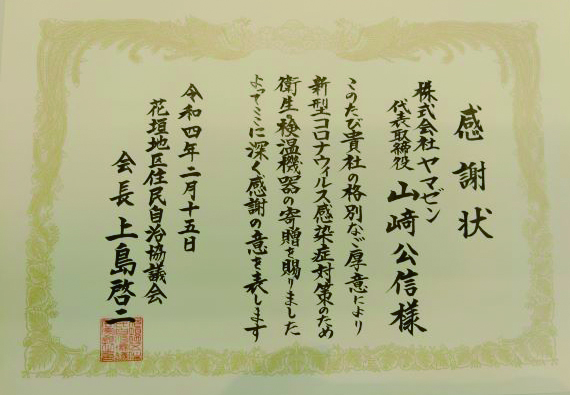 感謝状
株式会社ヤマゼン
代表取締役 山﨑公信様
このたび貴社の格別なご厚意により
新型コロナウィルス感染症対策のため
衛生・検温機器の寄贈を賜りました
よってここに深く感謝の意を表します
令和四年二月十五日
花垣地区住民自治協議会
会長 上島啓二